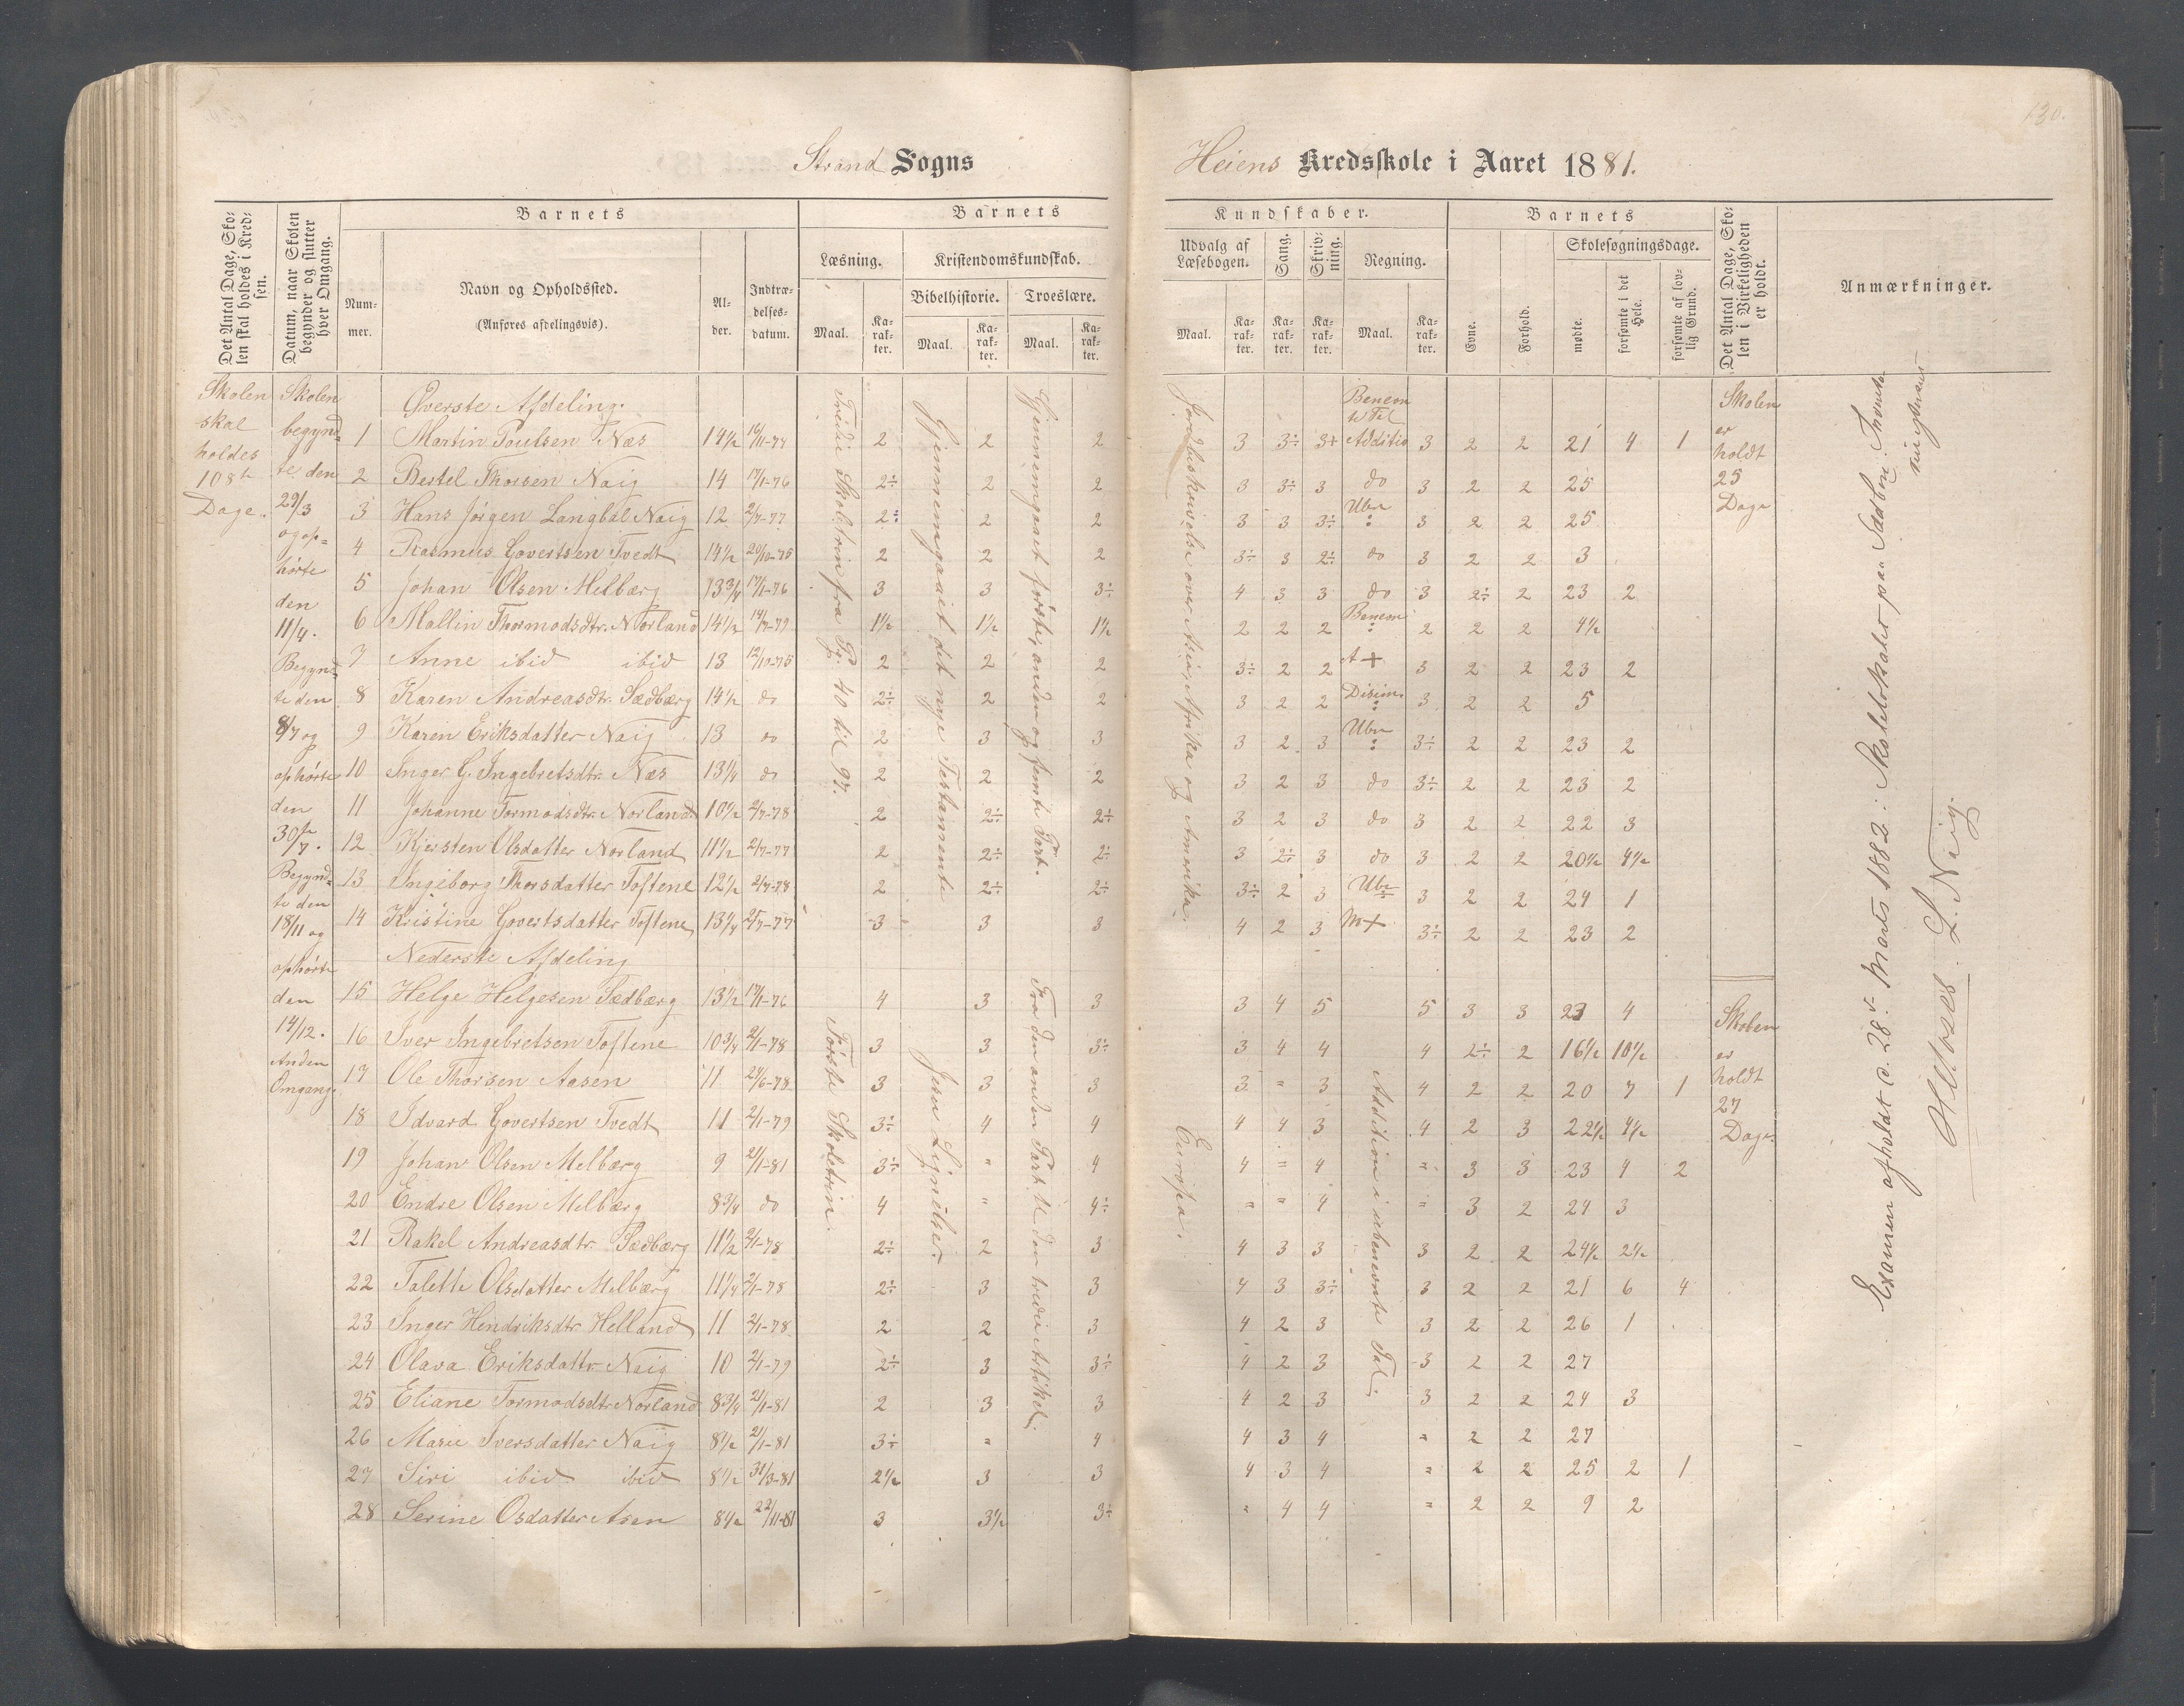 130.
Strand Sogns
Heiens Kredsskole i Aaret 1881.
Det Antal Dage, Skolen skal holdes i Kredsen.
Datum, naar Skolen begynder og slutter hver Omgang.
Barnets
Nummer.
Navn og Opholdssted.
(Anføres afdelingsvis).
Alder.
Indtrædelses-datum.
Barnets
Kundskaber.
Læsning.
Maal.
Karakter.
Kristendomskundskab.
Bibelhistorie.
Maal.
Karakter.
Troeslære.
Maal.
Karakter.
Udvalg af Læsebogen.
Maal.
Karakter.
Sang.
Karakter.
Skrivning.
Karakter.
Regning.
Maal.
Karakter.
Barnets
Evne.
Forhold.
Skolesøgningsdage.
mødte.
forsømte i det Hele.
forsømte af lovlig Grund.
Det Antal Dage, Skolen i Virkeligheden er holdt.
Anmærkninger.
Skolen
skal
holdes
108
Dage.
Skolen
begynd-
te den
29/3
og op-
hørte
den
11/4.
Begynd-
te den
8/7 og
ophørte
den
30/7.
Begynd-
te den
18/11 og
ophørte
den
14/12.
Anden
Omgang
Øverste Afdeling.
1 Martin Poulsen Næs 14½ 2 2 2 3 3÷ 3+ Addition 3 2 2 21 4 1
2 Bertel Thorsen Naig 14 17/1-76 2÷ 2 2 3 3÷ 3 do 3 2 2 25
3 Hans Jørgen Langbal Naig 12 2/7-77 2÷ 2 2 3 3 3÷ Ube : 3 2 2 25
4 Rasmus Govertsen Tvedt 14½ 20/10-75 2 2 2 3÷ 3 2÷ do 3 2 2 3
5 Johan Olsen Melbærg 13¾ 17/1-76 3 3 3÷ 4 3 3 do 3 2÷ 2 23 2
6 Mallin Thormodsdtr. Norland 14½ 1½ 1½ 1½ 2 2 2 Benevn : 2 2 2 4½
7 Anne ibid ibid 13 12/10-75 2 2 2 3÷ 2 2 A+ 3 2 2 23 2
8 Karen Andreasdtr. Sædbærg 14½ do 2÷ 2 2 3 2 2 3 2 2 5
9 Karen Eriksdatter Naig 13 do 2 3 3 3 2 3 Ube : 3÷ 2 2 23 2
10 Inger G. Ingebretsdtr. Næs 13¼ do 2 2 2 3 2 3 do 3÷ 2 2 23 2
11 Johanne Tormodsdtr. Norland 10½ 2/7-78 2 2÷ 2÷ 3 2 3 do 3 2 2 22 3
12 Kjersten Olsdatter Norland 11½ 2/7-77 2 2÷ 2÷ 3 2÷ 3 do 3 2 2 20½ 4½
13 Ingeborg Thorsdatter Toftene 12½ 2/7-78 2 2÷ 2÷ 3÷ 2 3 Ube 3 2 2 24 1
14 Kristine Govertsdatter Toftene 13¼ 2/7-77 3 3 3 4 2 3 M+ 3÷ 2 2 23 2
Tredie Skoletrin fra Pg. 40 til 97.
Gjennemgaaet det nye Testamente
Gjennemgaaet første, anden og femte Part.
Jordbeskrivelse over Asia, Afrika og Amerika.
Skolen
er
holdt
25
Dage
Nederste Afdeling
15 Helge Helgesen Sædbærg 13½ 17/1-76 4 3 3 3 4 5 5 3 3 23 4
16 Iver Ingebretsen Toftene 10¾ 2/1-78 3 3 3÷ 3 4 4 4 2÷ 2 16½ 10½
17 Ole Thorsen Aasen 11 24/6-78 3 3 3 3 = 3 4 2 2 20 7 1
18 Edvard Govertsen Tvedt 11 2/1-79 3÷ 4 4 4 4 3 4 2 3 22½ 4½
19 Johan Olsen Melbærg 9 2/1-81 3÷ " 4 4 = 4 = 3 3 23 4 2
20 Endre Olsen Melbærg 8¾ do 4 = 4÷ = = 4 = 3 2 24 3
21 Rakel Andreasdtr. Sædbærg 11½ 2/1-78 2÷ 2 3 4 3 3 3 2 2 24½ 2½
22 Talette Olsdatter Melbærg 11¼ 2/1-78 2÷ 3 3 4 3 3÷ 3 2 2 21 6 4
23 Inger Hendriksdtr Helland 11 2/1-78 2 2 3 4 2 3 3 2 2 26 1
24 Olava Eriksdattr. Naig 10 2/1-79 2÷ 3 3÷ 4 2 3 3 2 2 27
25 Eliane Tormodsdtr. Norland 8¾ 2/1-81 2 3 3 4 2 3 3 2 2 24 3
26 Marie Iversdatter Naig 8½ 2/1-81 3÷ = 4 4 3 4 = 2 2 27
27 Siri ibid ibid 8½ 31/3-81 2½ 3 3 4 3 4 = 2 2 25 2 1
28 Serine Osdatter Asen 8½ 22/11-81 3 3½ 3÷ = 4 4 = 2 2 9 2
Første Skoletrin.
Jesu Lignelser.
Fra den anden Part til den tredie Artikel.
Europa.
Addition i ubenevnte Tal.
Skolen
er
holdt
27
Dage.
Examen afholdt d. 28de Marts 1882 i Skolelokalet paa Sædberg.
L. Naig.